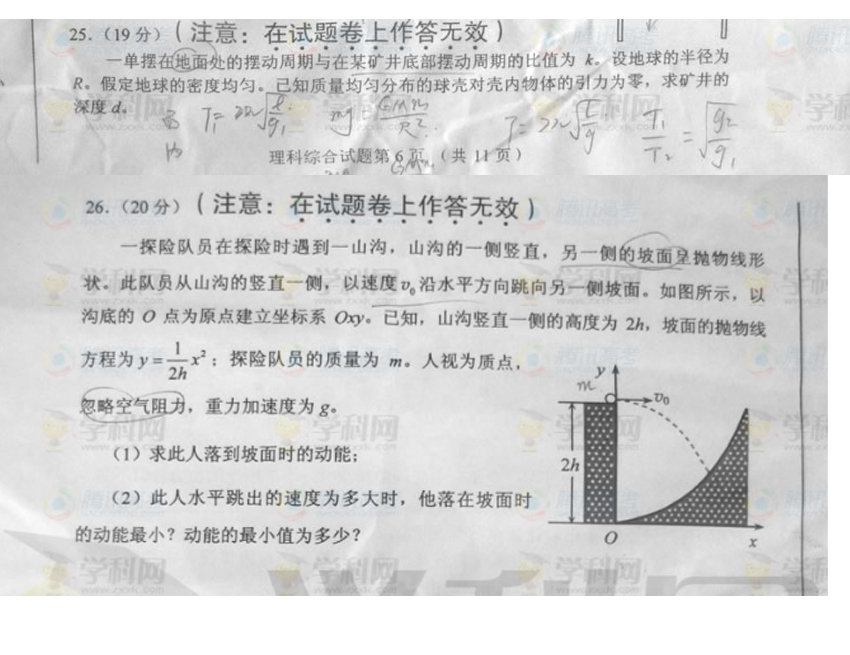 25.(19分)(注意:在试题卷上作答无效)
一单摆在地面处的摆动周期与在某矿井底部摆动周期的比值为 k。设地球的半径为
R。假定地球的密度均匀。已知质量均匀分布的球壳对壳内物体的引力为零,求矿井的
深度 d。
理科综合试题第 6 页 (共 11 页)
26.(20分)(注意:在试题卷上作答无效)
一探险队员在探险时遇到一山沟,山沟的一侧竖直,另一侧的坡面呈抛物线形
状。此队员从山沟的竖直一侧,以速度 v₀ 沿水平方向跳向另一侧坡面。如图所示,以
沟底的 O 点为原点建立坐标系 Oxy。已知,山沟竖直一侧的高度为 2h,坡面的抛物线
方程为 y=1/2h x²;探险队员的质量为 m。人视为质点,
忽略空气阻力,重力加速度为 g。
(1)求此人落到坡面时的动能;
(2)此人水平跳出的速度为多大时,他落在坡面时
的动能最小?动能的最小值为多少?
y
m
v₀
2h
O
x
学科网
腾讯高考